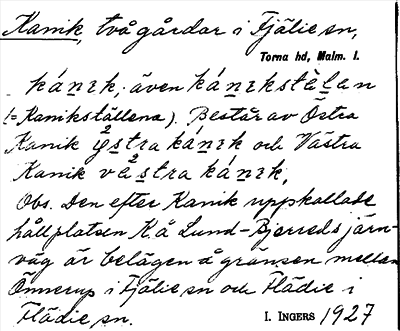 Kanik, två gårdar i Fjälie sn,
Torna hd, Malm. l.
kánɪk; även kánɪkstɛ̀lan
(= Kanikställena). Består av Östra
Kanik ý̊stra kánɪk och Västra
Kanik vǻstra kánɪk,
Obs. Den efter Kanik uppkallade
hållplatsen K. å Lund–Bjerreds järn-
väg är belägen å gränsen mellan
Önnerup i Fjälie sn och Flädie i
Flädie sn.
I. INGERS 1927